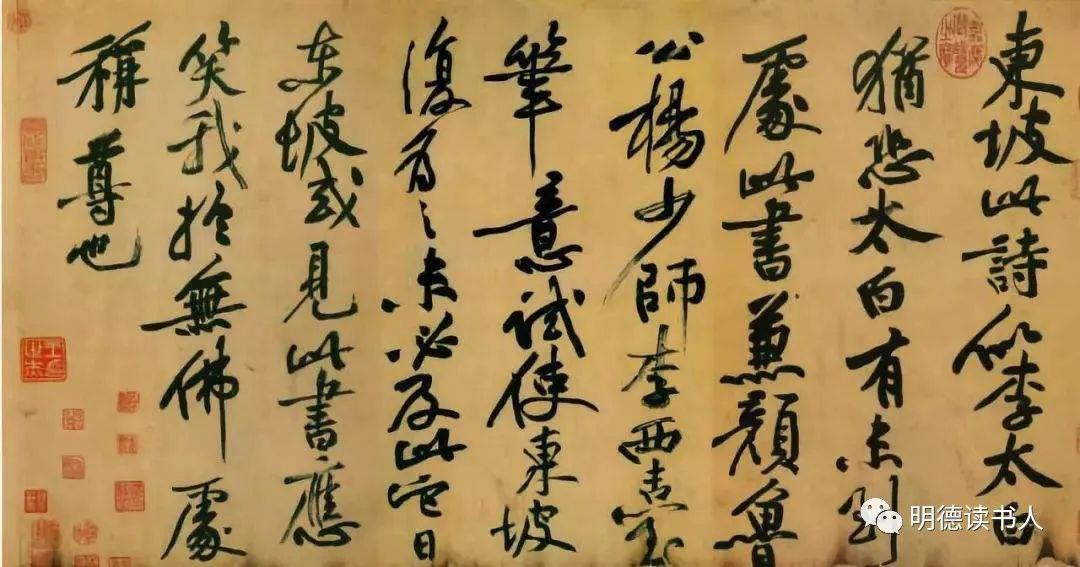 東坡此詩似李太白
猶恐太白有未到
處此書兼顏魯
公楊少師李西臺
筆意試使東坡
復為之未必及此它日
东坡或見此書應
笑我於無佛處
稱尊也
明德读书人